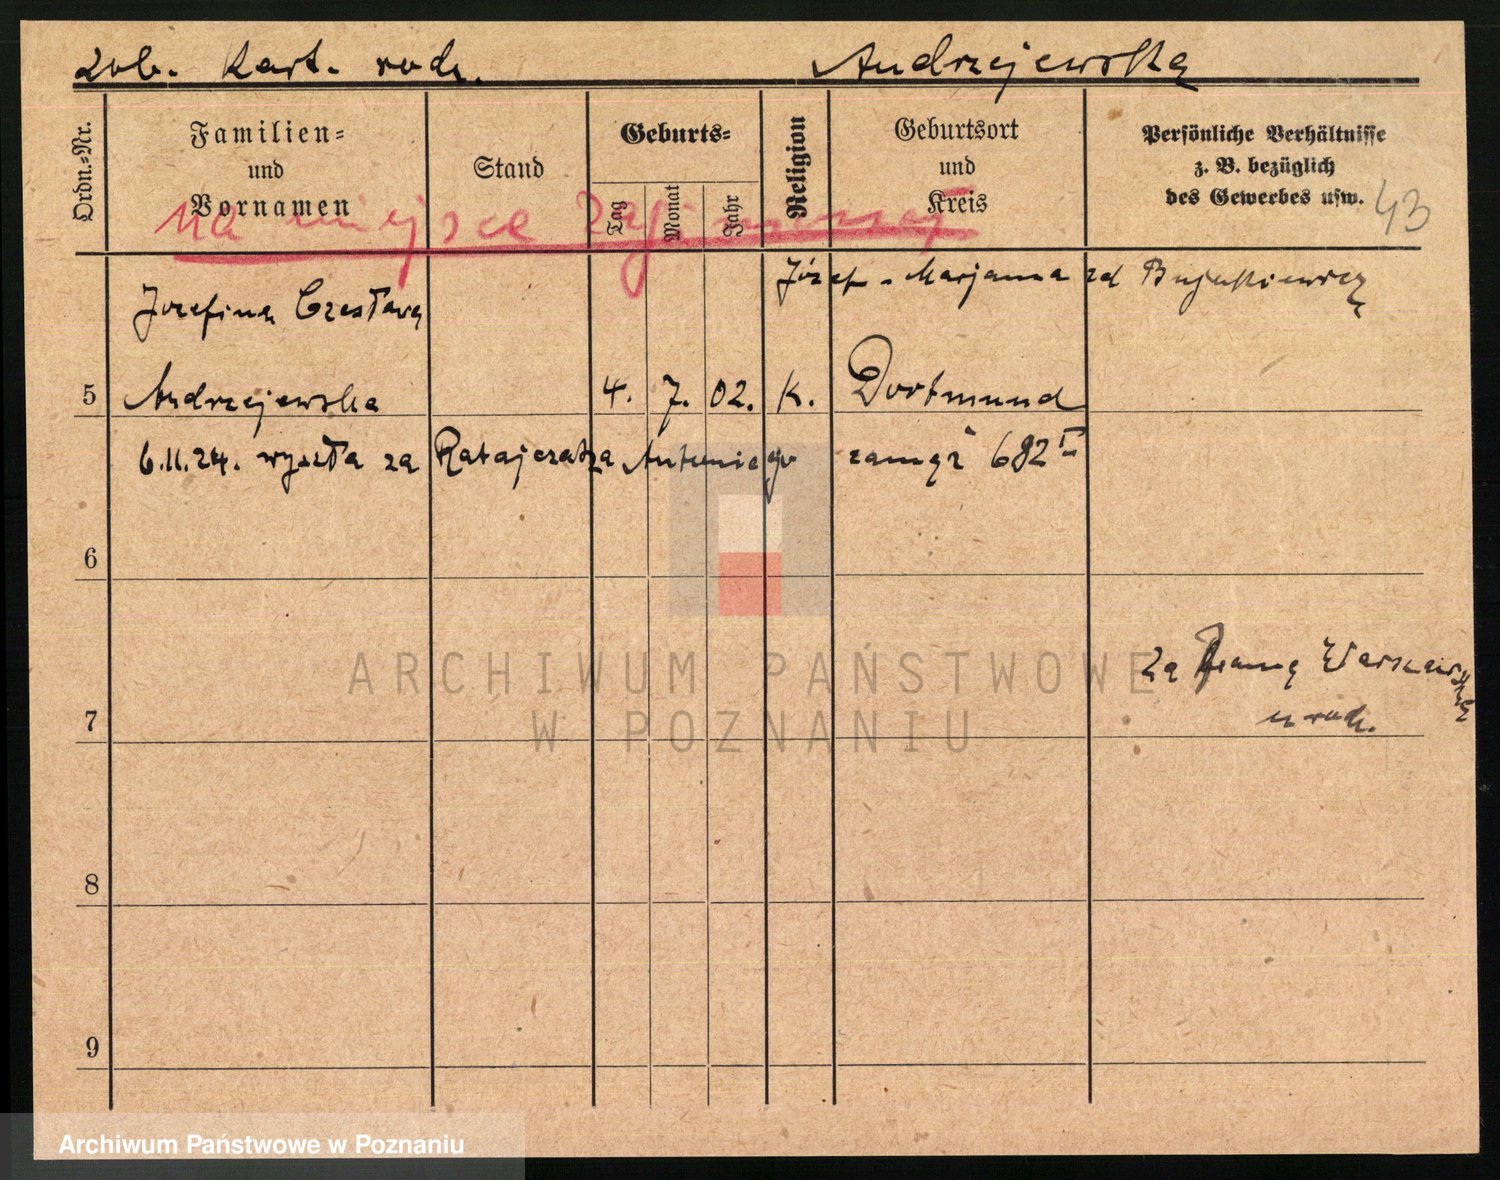 zob. Kart. rodz. Andrzejewska
Ordn.=Nr.
Familien=
und
Vornamen
Stand
Geburts=
Tag
Monat
Jahr
Religion
Geburtsort
und
Kreis
Persönliche Verhältnisse
z. B. bezüglich
des Gewerbes usw.
43
na miejsce
Józef - Marjanna zd
Jozefina Czesława
5 Andrzejewska 4. 7. 02. K. Dortmund
6.11.24. wyszła za Ratajczaka Antoniego zamęż 682 II
6
Za Bramą Warszawską
u rodz.
7
8
9
ARCHIWUM PAŃSTWOWE
W POZNANIU
Archiwum Państwowe w Poznaniu